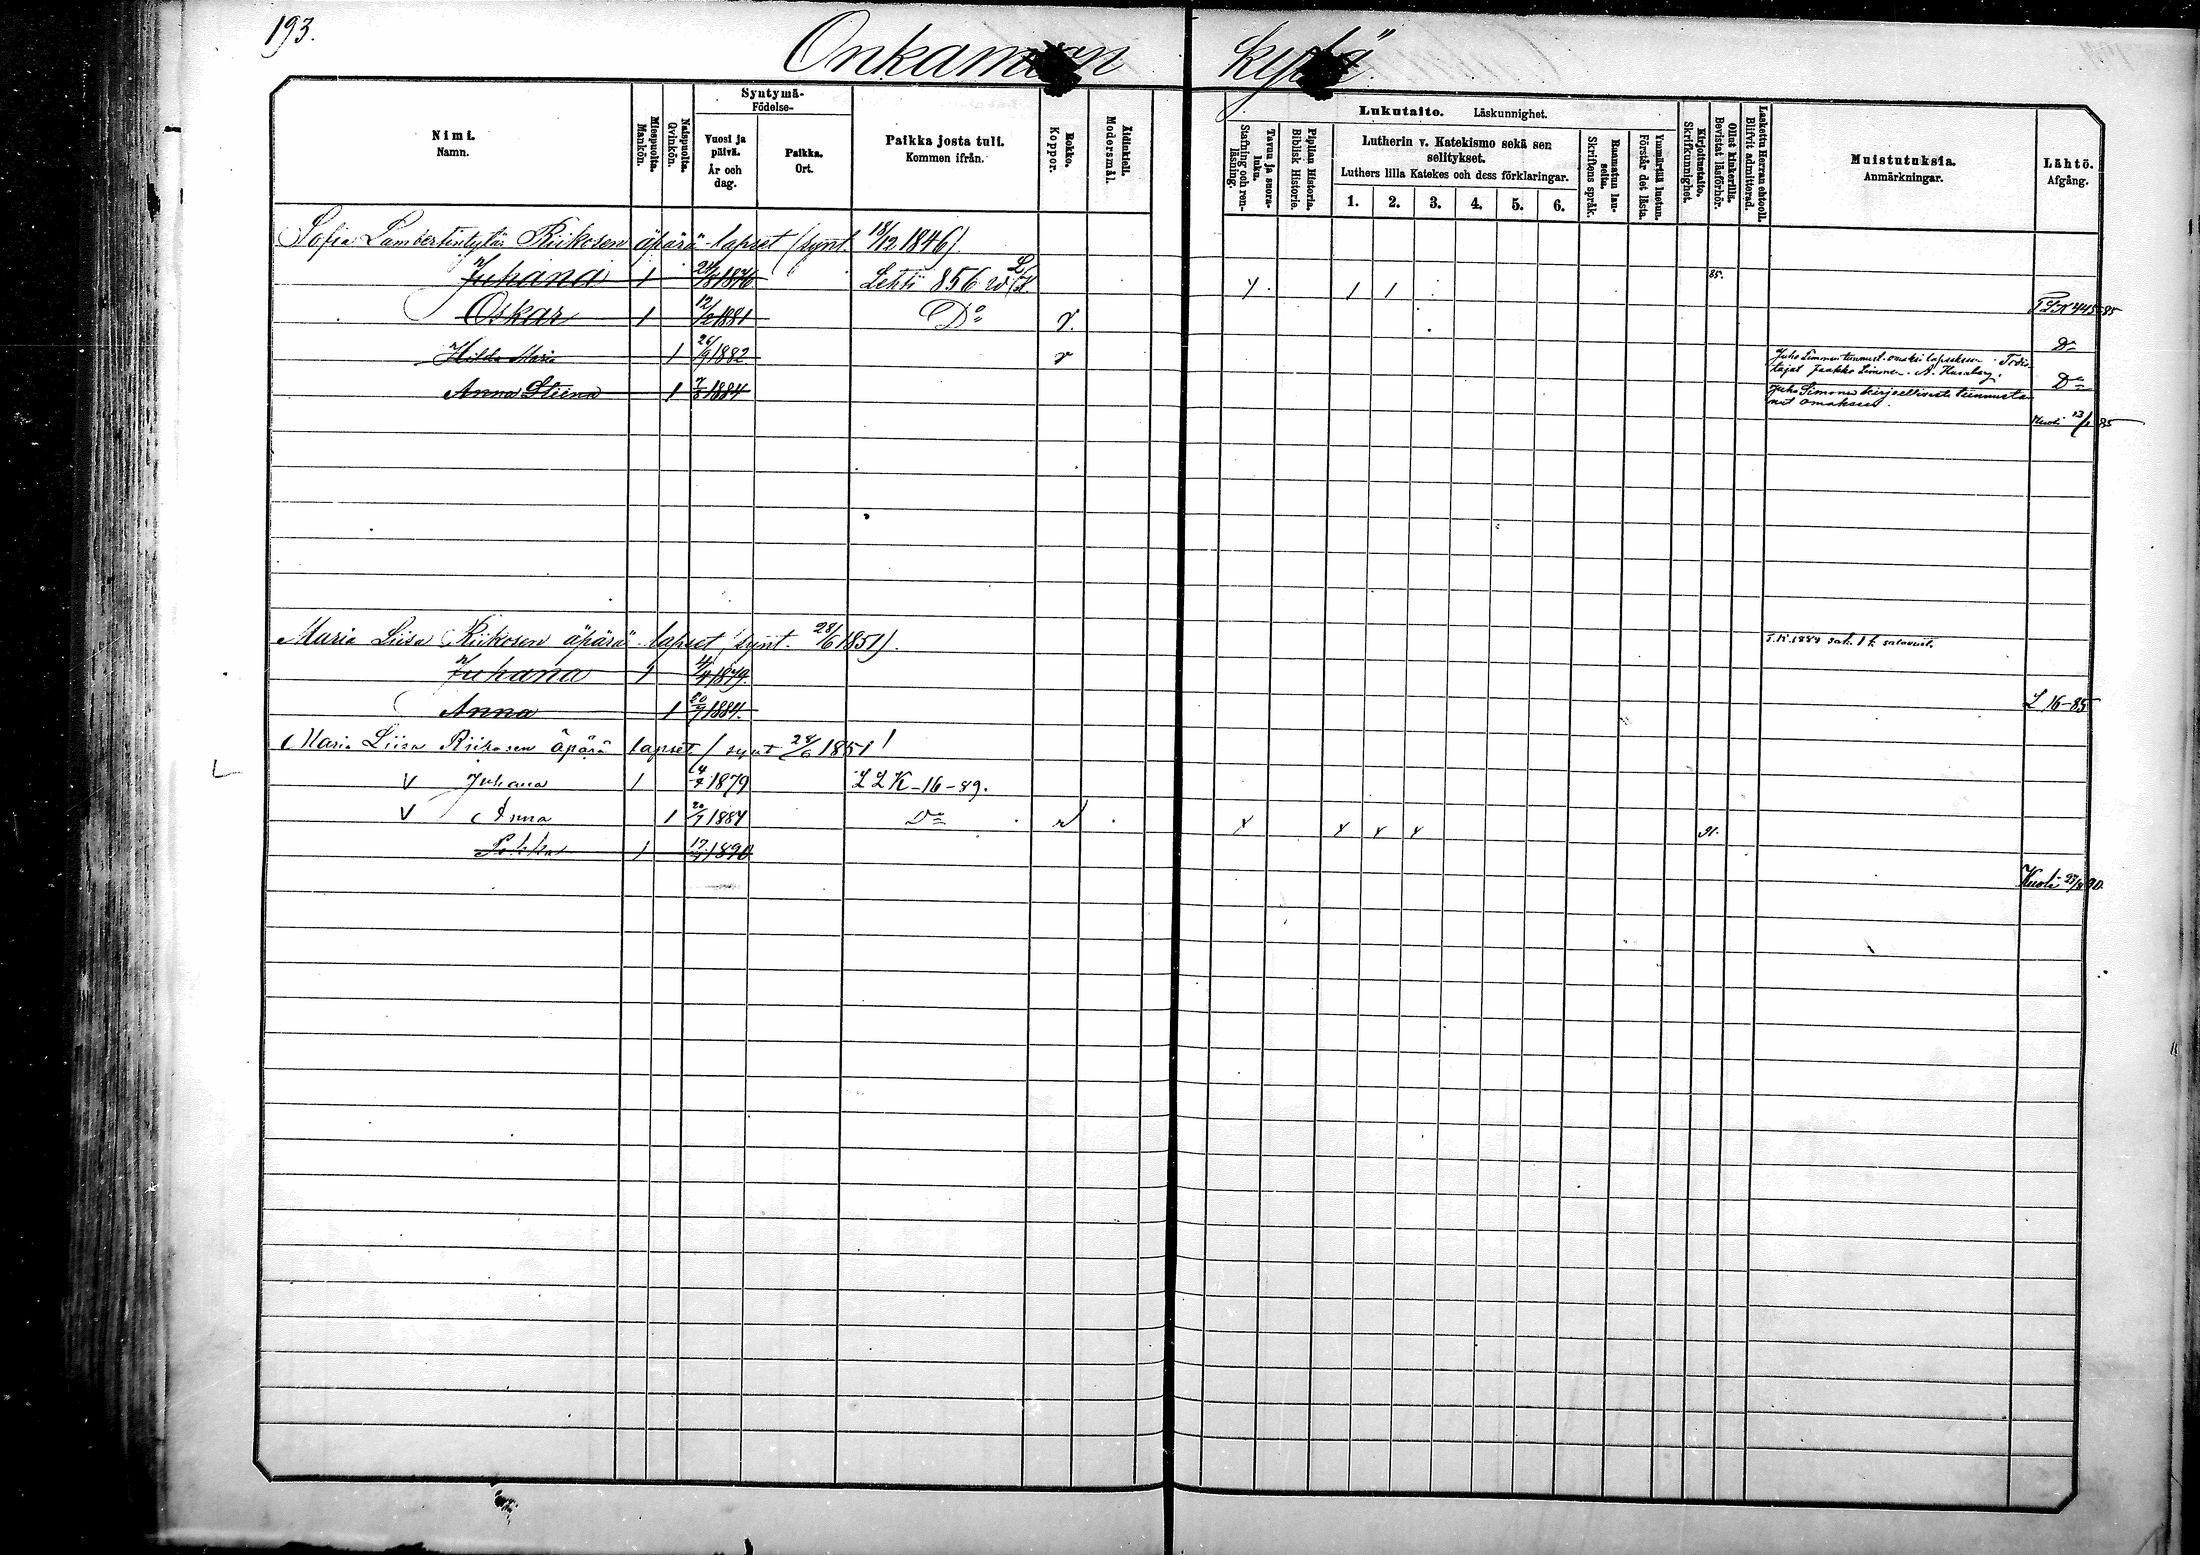 193.
Onkamaan kylä.
Nimi.
Namn.
Miespuolta.
Mankön.
Naispuolta.
Qvinkön.
Syntymä-
Födelse-
Vuosi ja
päivä.
År och
dag.
Paikka.
Ort.
Paikka josta tuli.
Kommen ifrån.
Rokko.
Koppor.
Äidinkieli.
Modersmål.
Lukutaito. Läskunnighet.
Tavuu ja suora-
luku.
Stafning och ren-
läsning.
Piplian Historia.
Biblisk Historie.
Lutherin v. Katekismo sekä sen
selitykset.
Luthers lilla Katekes och dess förklaringar.
1. 2. 3. 4. 5. 6.
Raamatun lau-
seita.
Skriftens språk.
Ymmärtää luetun.
Förstår det lästa.
Kirjoitustaito.
Skrifkunnighet.
Ollut kinkerillä.
Bevistat läsförhör.
Laskettu Herran ehtool.
Blifvit admitterad.
Muistutuksia.
Anmärkningar.
Lähtö.
Afgång.
Sofia Lambertintytär Riikosen äpärä-lapset (synt. 18/12 1846).
Juhana 1 24/8 1876 Lehti 856 85.
Oskar 1 12/2 1881 Do r. 445-85
Hilda Maria 1 26/9 1882 r Do
Juho Simonen tunnust. omaksi lapsekseen. Todis-
tajat Jaakko Simonen. A.
Anna Stiina 1 1884 Do
Juho Simonen kirjallisesti tunnusta-
nut omaksi.
Kuoli 13/1 85
Maria Liisa Riikosen äpärä-lapset (synt. 28/6 1851).
Juhana 1 4/4 1879.
Anna 1 20/7 1884. L 16-85
Maria Liisa Riikosen äpärä lapset / synt 28/6 1851 /
V Juhana 1 1879 L L K-16-89.
V Anna 1 20/7 1884 Do r 91.
Pekka 1 1890
Kuoli 90.